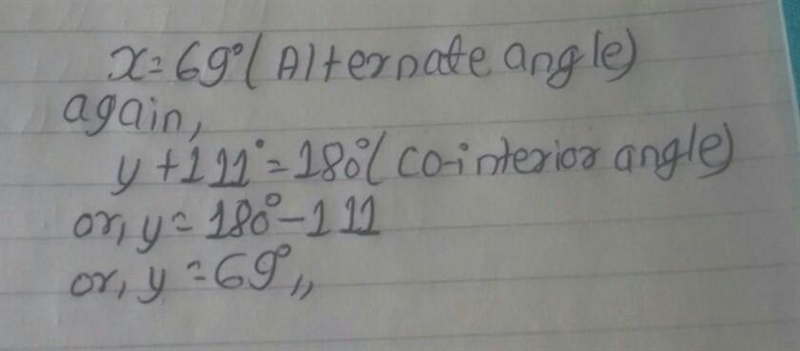 x=69°(Alternate angle)
again,
y+111°=180°(co-interior angle)
or, y=180°-111
or, y=69°,,